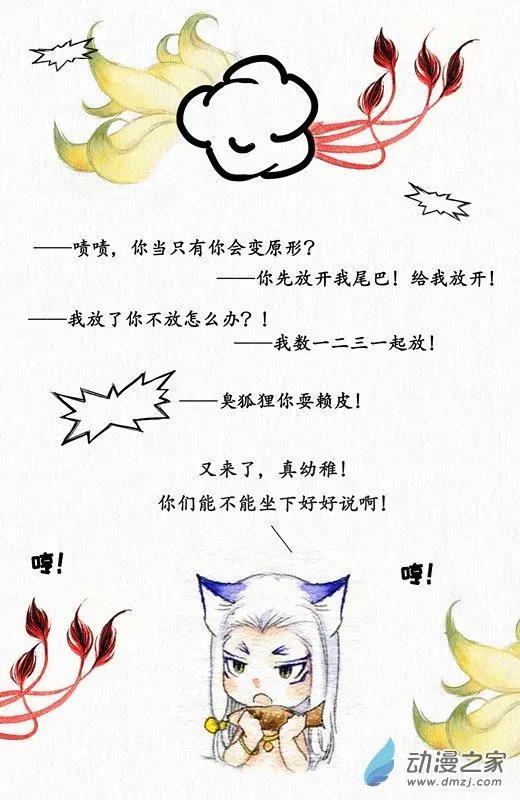 ——啧啧，你当只有你会变原形？
——你先放开我尾巴！给我放开！
——我放了你不放怎么办？！
——我数一二三一起放！
——臭狐狸你耍赖皮！
又来了，真幼稚！
你们能不能坐下好好说啊！
哼！
哼！
动漫之家
www.dmzj.com